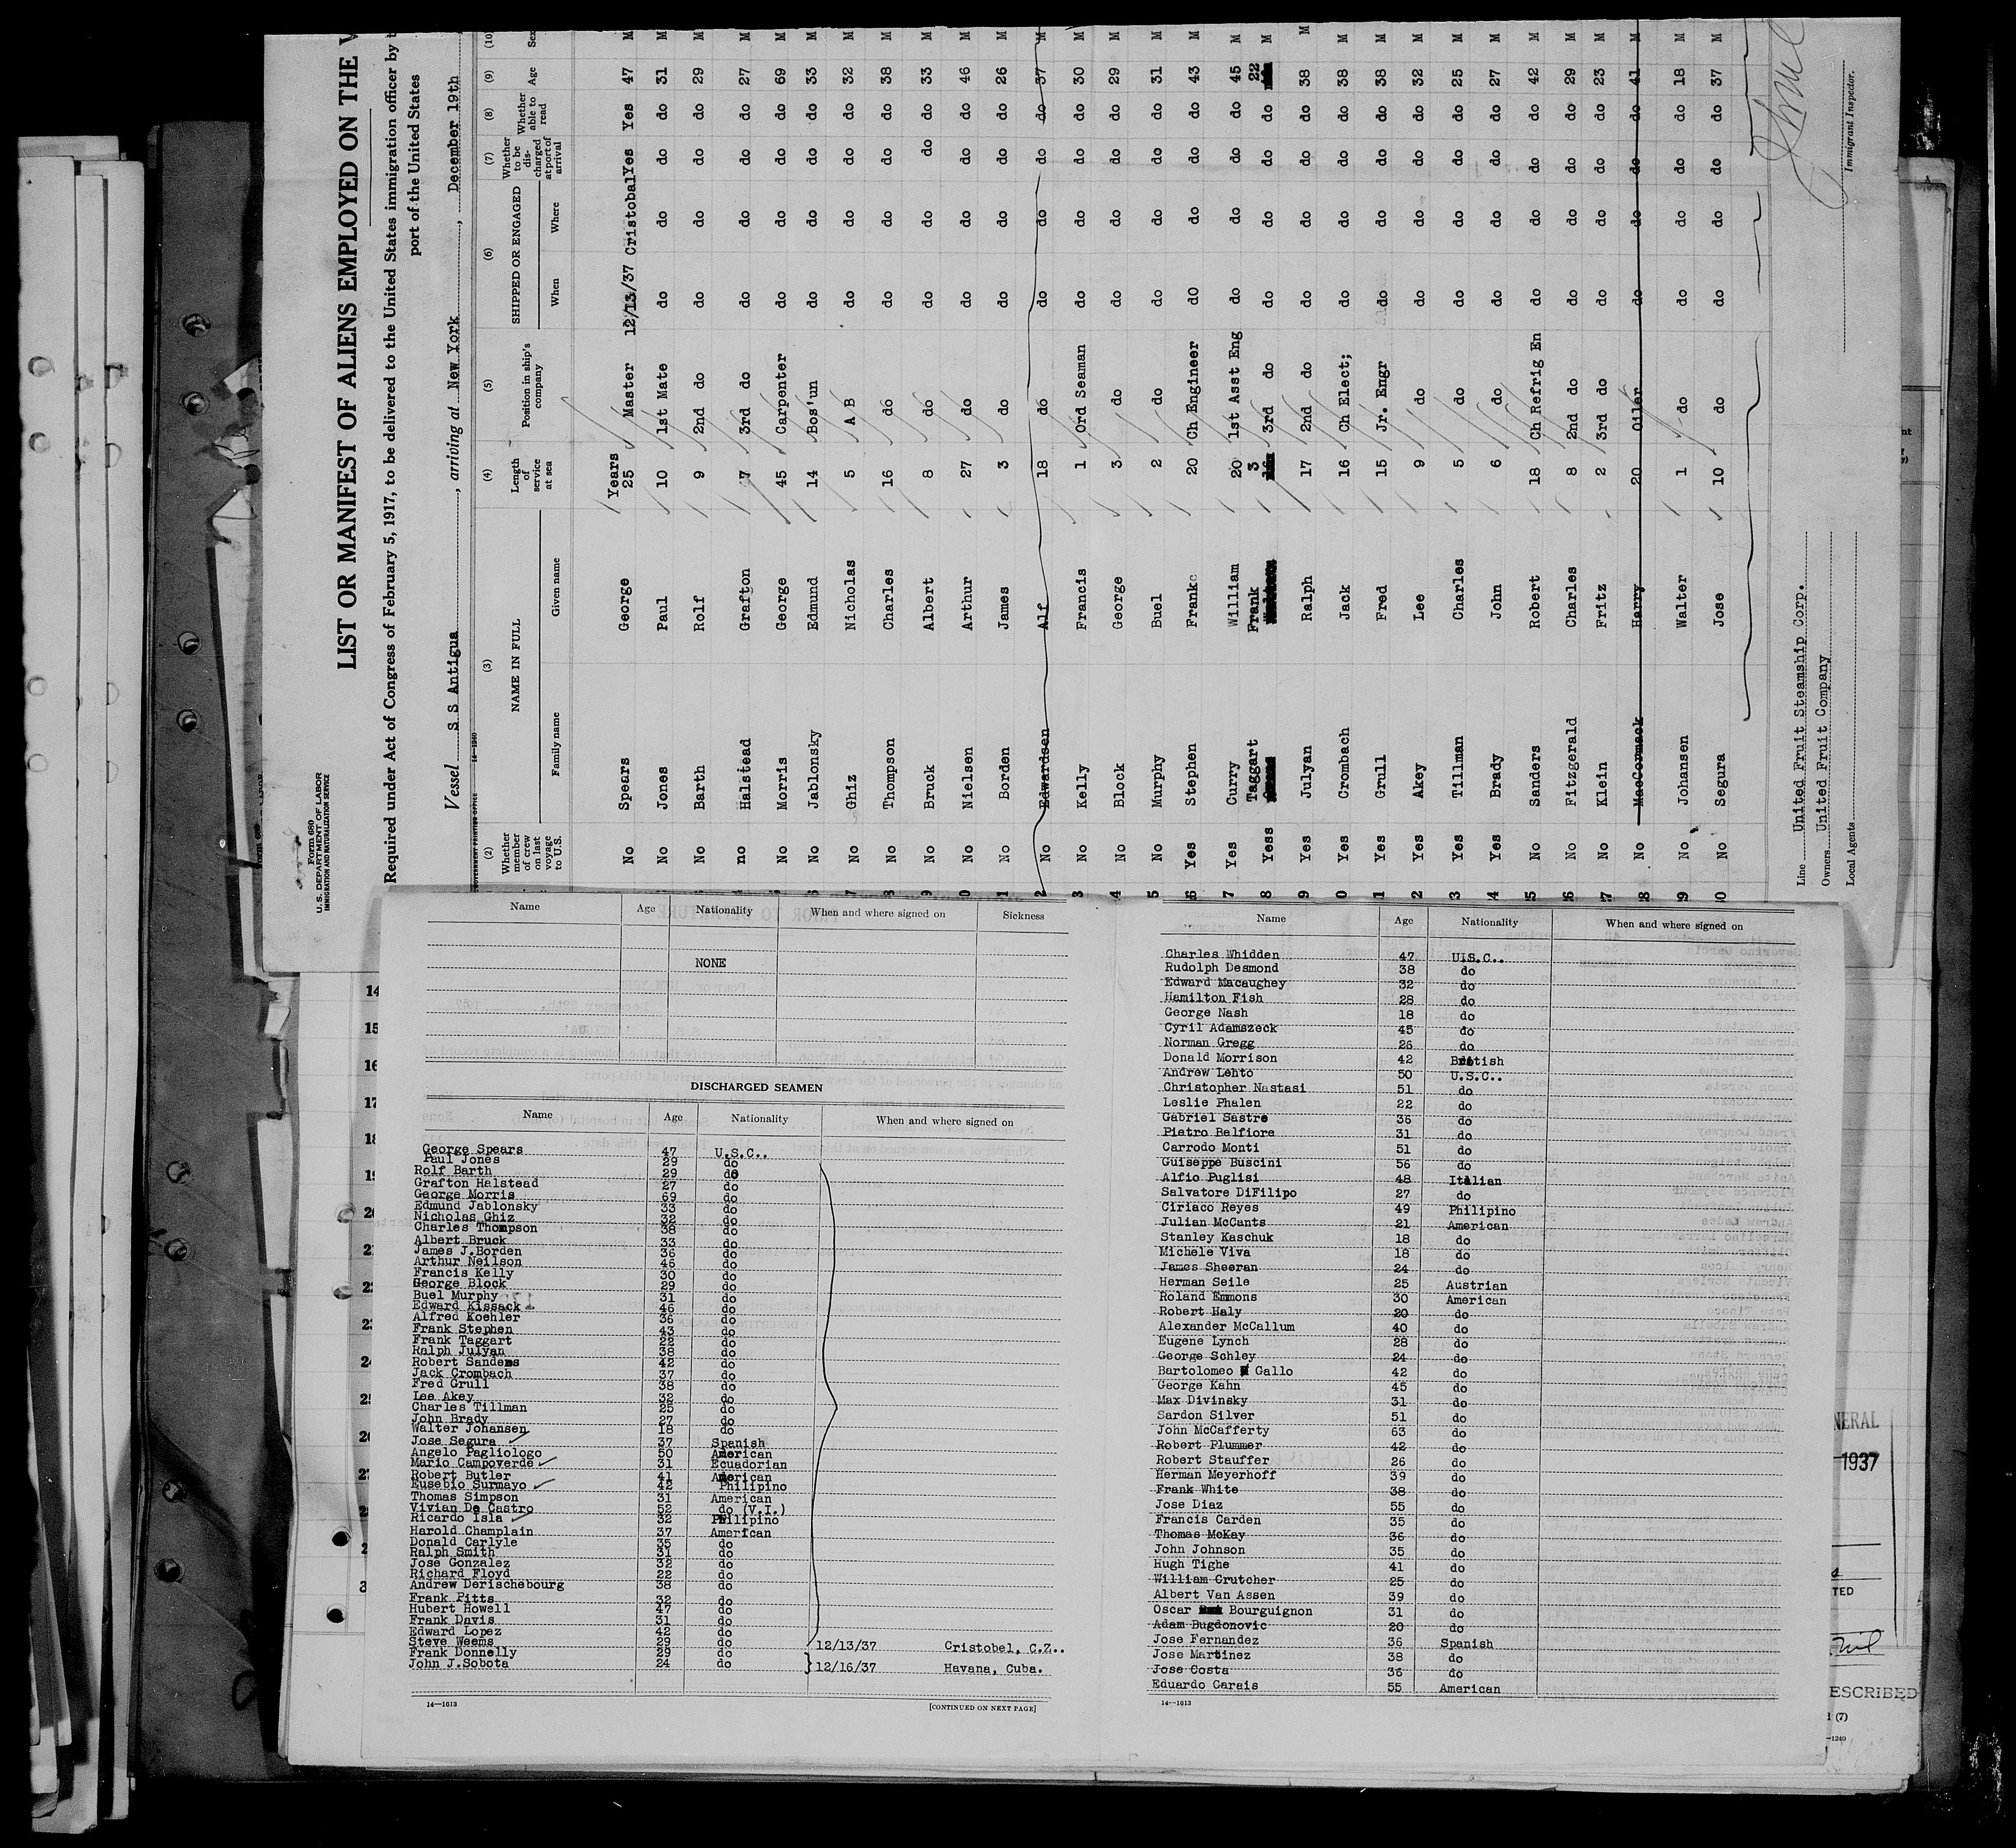 Form 680
U. S. DEPARTMENT OF LABOR
IMMIGRATION AND NATURALIZATION SERVICE
LIST OR MANIFEST OF ALIENS EMPLOYED ON THE
Required under Act of Congress of February 5, 1917, to be delivered to the United States immigration officer by
port of the United States
Vessel S S Antigua, arriving at New York, December 19th
14-1240
(2) (3) (4) (5) (6) (7) (8) (9) (10)
Whether member of crew on last voyage to U.S. NAME IN FULL Family name Given name Length of service at sea Position in ship's company SHIPPED OR ENGAGED When Where Whether to be discharged at port of arrival Whether able to read Age Sex
No Spears George Years 25 Master 12/13/37 Cristobal Yes Yes 47 M
No Jones Paul 10 1st Mate do do do do 31 M
No Barth Rolf 9 2nd do do do do do 29 M
no Halstead Grafton 7 3rd do do do do do 27 M
No Morris George 45 Carpenter do do do do 69 M
No Jablonsky Edmund 14 Bos'un do do do do 33 M
No Ghiz Nicholas 5 A B do do do do 32 M
No Thompson Charles 16 do do do do do 38 M
No Bruck Albert 8 do do do do do 33 M
No Nielsen Arthur 27 do do do do do 46 M
No Borden James 3 do do do do do 26 M
No Edwardsen Alf 18 do do do do do 37 M
No Kelly Francis 1 Ord Seaman do do do do 30 M
No Block George 3 do do do do do 29 M
No Murphy Buel 2 do do do do do 31 M
Yes Stephen Frank 20 Ch Engineer do do do do 43 M
Yes Curry William 20 1st Asst Eng do do do do 45 M
Yess Taggart Frank 3 3rd do do do do do 22 M
Yes Julyan Ralph 17 2nd do do do do do 38 M
Yes Crombach Jack 16 Ch Elect; do do do do 38 M
Yes Grull Fred 15 Jr. Engr do do do do 38 M
Yes Akey Lee 9 do do do do do 32 M
Yes Tillman Charles 5 do do do do do 25 M
Yes Brady John 6 do do do do do 27 M
No Sanders Robert 18 Ch Refrig En do do do do 42 M
No Fitzgerald Charles 8 2nd do do do do do 29 M
No Klein Fritz 2 3rd do do do do do 23 M
No MacCormack Harry 20 Oiler do do do do 41 M
No Johansen Walter 1 do do do do do 18 M
No Segura Jose 10 do do do do do 37 M
Line United Fruit Steamship Corp.
Owners United Fruit Company
Local Agents
Immigrant Inspector.
Name Age Nationality When and where signed on Sickness
NONE
DISCHARGED SEAMEN
Name Age Nationality When and where signed on
George Spears 47 U.S.C..
Paul Jones 29 do
Rolf Barth 29 do
Grafton Halstead 27 do
George Morris 69 do
Edmund Jablonsky 33 do
Nicholas Ghiz 32 do
Charles Thompson 38 do
Albert Bruck 33 do
James J.Borden 36 do
Arthur Neilson 46 do
Francis Kelly 30 do
George Block 29 do
Buel Murphy 31 do
Edward Kissack 46 do
Alfred Koehler 36 do
Frank Stephen 43 do
Frank Taggart 22 do
Ralph Julyan 38 do
Robert Sanders 42 do
Jack Crombach 37 do
Fred Grull 38 do
Lee Akey 32 do
Charles Tillman 25 do
John Brady 27 do
Walter Johansen 18 do
Jose Segura 37 Spanish
Angelo Pagliologo 50 American
Mario Campoverde 31 Ecuadorian
Robert Butler 41 American
Eusebio Surmayo 42 Philipino
Thomas Simpson 31 American
Vivian De Castro 52 do (V.I.)
Ricardo Isla 32 Philipino
Harold Champlain 37 American
Donald Carlyle 35 do
Ralph Smith 31 do
Jose Gonzalez 32 do
Richard Floyd 22 do
Andrew Derischebourg 38 do
Frank Pitts 32 do
Hubert Howell 47 do
Frank Davis 31 do
Edward Lopez 42 do
Steve Weems 29 do 12/13/37 Cristobel, C.Z..
Frank Donnelly 29 do
John J.Sobota 24 do 12/16/37 Havana, Cuba.
14—1613 [CONTINUED ON NEXT PAGE]
Name Age Nationality When and where signed on
Charles Whidden 47 U.S.C..
Rudolph Desmond 38 do
Edward Macaughey 32 do
Hamilton Fish 28 do
George Nash 18 do
Cyril Adamszeck 45 do
Norman Gregg 26 do
Donald Morrison 42 British
Andrew Lehto 50 U.S.C..
Christopher Nastasi 51 do
Leslie Phalen 22 do
Gabriel Sastre 36 do
Pietro Belfiore 31 do
Carrodo Monti 51 do
Guiseppe Buscini 56 do
Alfio Puglisi 48 Italian
Salvatore DiFilipo 27 do
Ciriaco Reyes 49 Philipino
Julian McCants 21 American
Stanley Kaschuk 18 do
Michele Viva 18 do
James Sheeran 24 do
Herman Seile 25 Austrian
Roland Emmons 30 American
Robert Haly 20 do
Alexander McCallum 40 do
Eugene Lynch 28 do
George Schley 24 do
Bartolomeo Gallo 42 do
George Kahn 45 do
Max Divinsky 31 do
Sardon Silver 51 do
John McCafferty 63 do
Robert Plummer 42 do
Robert Stauffer 26 do
Herman Meyerhoff 39 do
Frank White 38 do
Jose Diaz 55 do
Francis Carden 35 do
Thomas McKay 36 do
John Johnson 35 do
Hugh Tighe 41 do
William Crutcher 25 do
Albert Van Assen 39 do
Oscar Bourguignon 31 do
Adam Bugdonovic 20 do
Jose Fernandez 36 Spanish
Jose Martinez 38 do
Jose Costa 36 do
Eduardo Garais 55 American
14—1613
14
15
16
17
18
19
20
21
22
23
24
25
26
27
NERAL
1937
TED
ESCRIBED
(7)
—1240